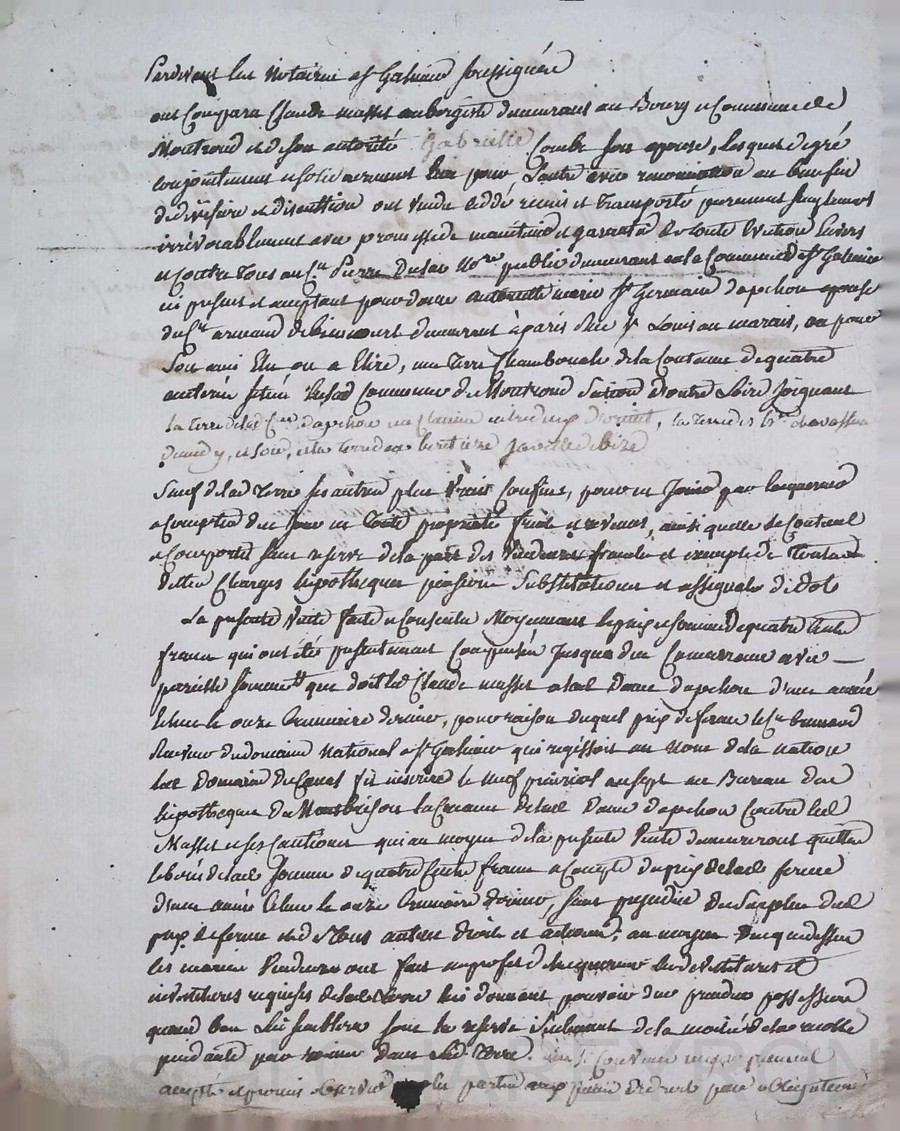 Pardevant les Notaires a St Galmier soussignés
ont Comparu Claude masset aubergiste demeurant au Bourg & Commune de
Montrond et de son autorité Gabrielle Combe son epouse, lesquels de gré
conjointement & solidairement l'un pour L'autre avec renonciation au benefice
de division et discution ont vendu cedé remis et transporté purement simplement
irrévocablement avec promesse de maintenir et garantir de toute Eviction Envers
& Contre tous au Cn Pierre Nore public demeurant en la Commune de St Galmier
ici present et acceptant pour dame Antoinette marie St Germain d'apchon epouse
du Cn armand de demeurant à paris Rüe St Louis au marais, ou pour
Son ami Elu ou a Elire, une terre Chambonale de la Contenue de quatre
Commune de Montrond d'outre Loire Joignant
la terre de lad. Cne d'apchon un Chemin entre deux d'orient, la terre des
et soir, et la terre de bize
Sauf de lad terre ses autres plus vrais Confins, pour en Jouir par
a Compter de ce jour en toute propriété fruits et revenus, ainsi quelle se Contient
& Comporte sans reserve de la part des Vendeurs franche et exempte de toutes
dettes Charges hipotheques pensions Substitutions et assignats de dot
La presente Vente faite & Consentie Moyennant le prix & somme de quatre Cents
francs qui ont étés presentement Compensés jusqua due Concurrence avec
pareille somme que doit led Claude masset a lad Dame d'apchon d'une année
Echue le onze Brumaire dernier, pour raison duquel prix de ferme le Cn
Receveur du domaine National a St Galmier qui regissoit au nom de la nation
les Domaines fit inscrire le neuf prairial an sept au Bureau des
hipotheques de Montbrison la Creance de lad Dame d'apchon Contre led
Masset et ses Cautions qui au moyen de la presente Vente demeurent quittes
de lad Somme de quatre Cents francs a Compte du prix de lad ferme
d'une année Echue le onze Brumaire dernier, sans prejudice du Surplus dud
prix de ferme et de tous autres droits et actions; au moyen de ce que dessus
les mariés Vendeurs ont fait au profit de les devestitures et
investitures requises de lad terre lui donnent pouvoir d'en prendre possession
quand bon Lui semblera sous la reserve seulement de la moitié de la recolte
pendante par racines dans lad. Terre.
accepté & promis observer les parties aux peines de droit par obligations